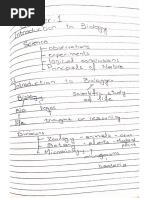 er. 1
Introduction to Biology
Science
observations
experiments
logical conclusions
Principals of Nature
Introduction to Biology:
Biology scientific study
of life
Bio logos
life thoughts or reasoning
Divisions
Zoology - animals -
Botany - plants -
Microbiology - micro
organisms
bacteria